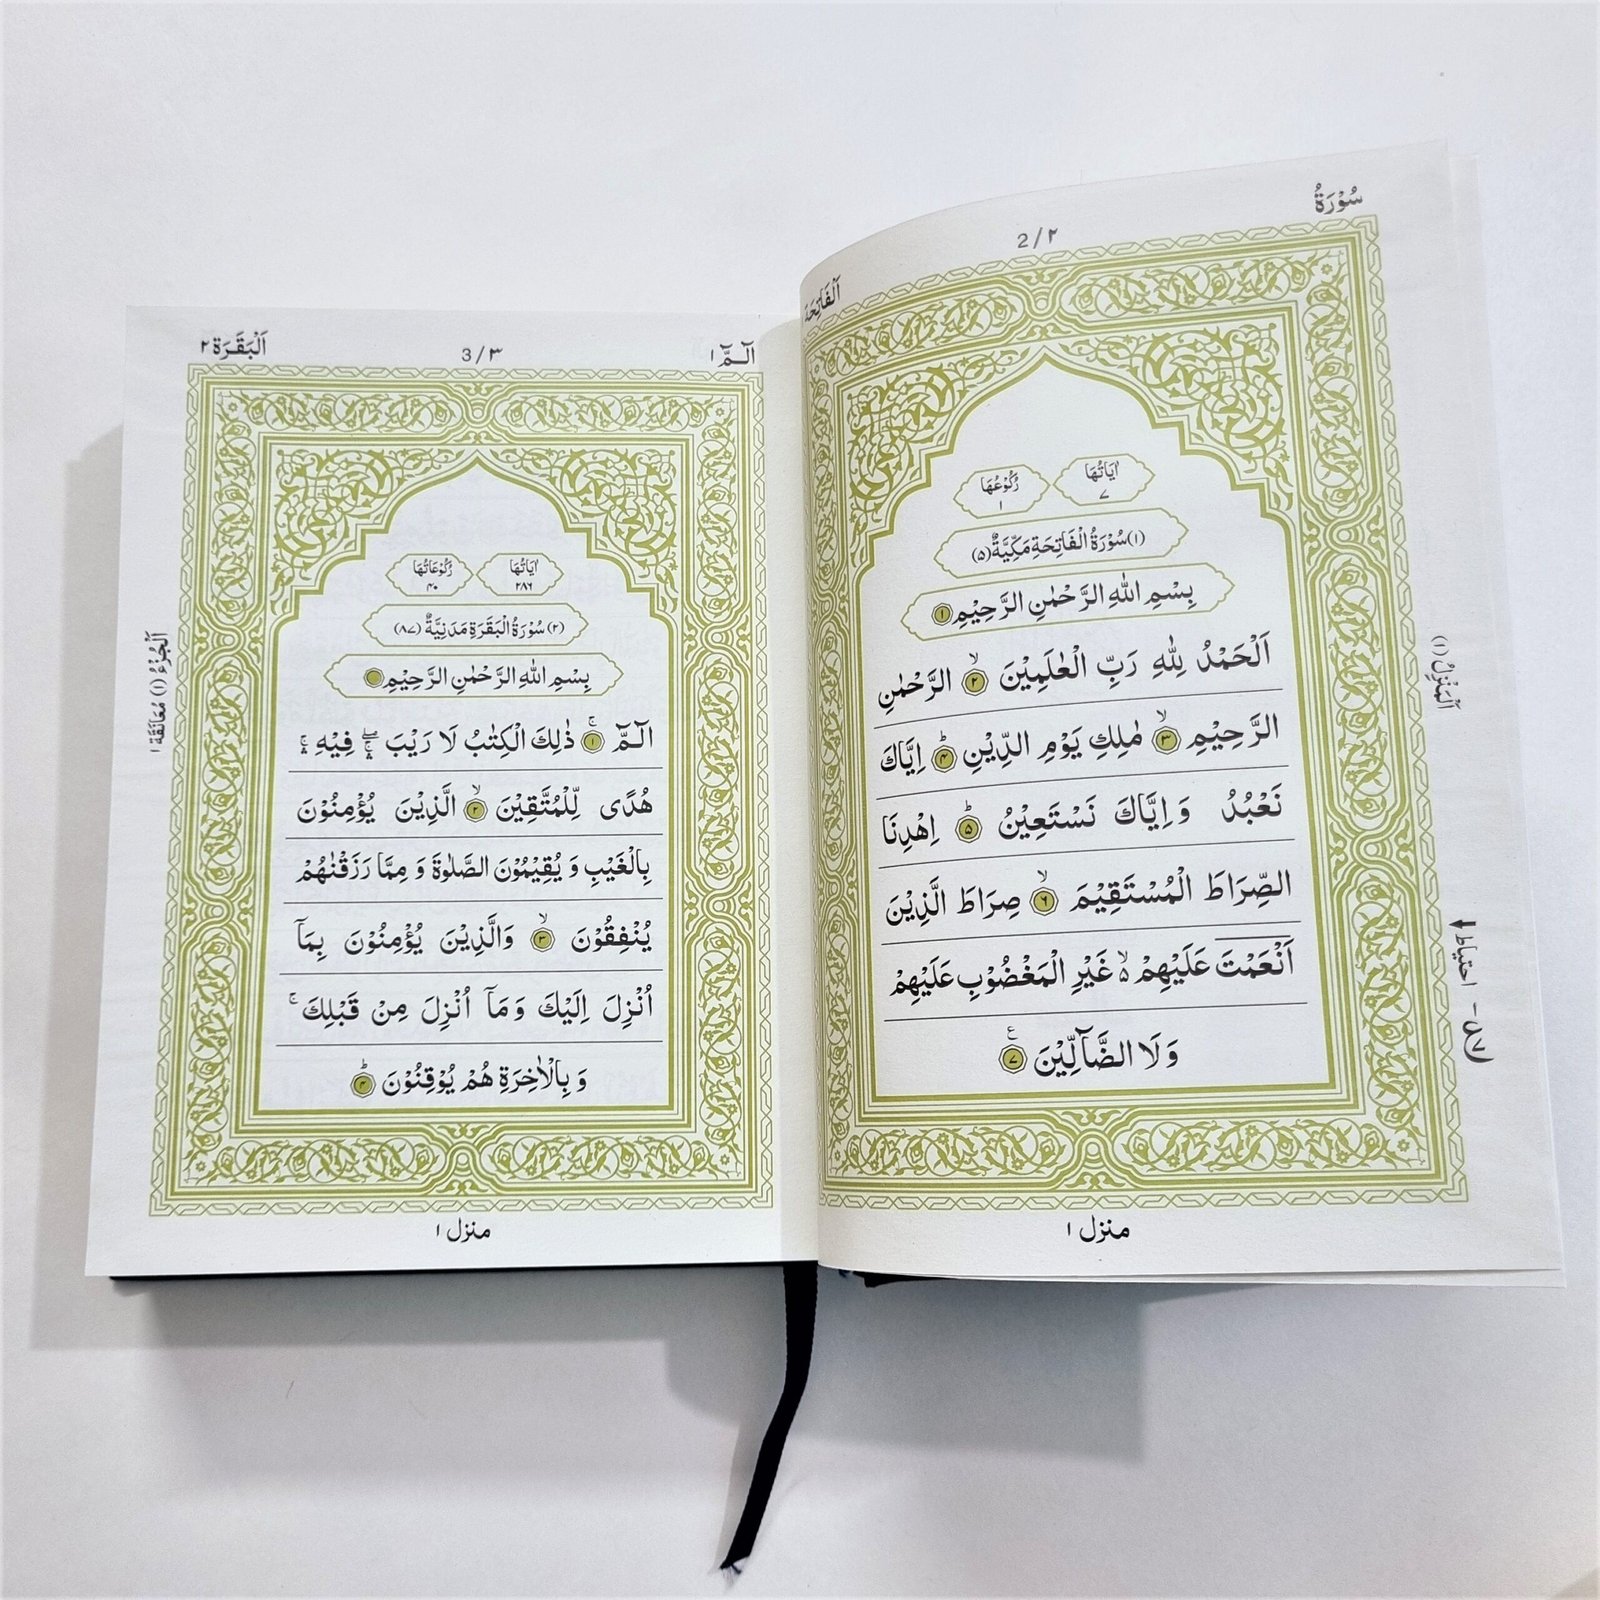 سُوْرَةُ
2/۲
اَلْفَاتِحَة
اٰيَاتُهَا ۷
رُكُوْعُهَا ۱
(۱) سُوْرَةُ الْفَاتِحَةِ مَكِّيَّةٌ (۵)
بِسْمِ اللّٰهِ الرَّحْمٰنِ الرَّحِيْمِ ۱
اَلْحَمْدُ لِلّٰهِ رَبِّ الْعٰلَمِيْنَ ۙ ۲ الرَّحْمٰنِ
الرَّحِيْمِ ۙ ۳ مٰلِكِ يَوْمِ الدِّيْنِ ؕ ۴ اِيَّاكَ
نَعْبُدُ وَ اِيَّاكَ نَسْتَعِيْنُ ؕ ۵ اِهْدِنَا
الصِّرَاطَ الْمُسْتَقِيْمَ ۙ ۶ صِرَاطَ الَّذِيْنَ
اَنْعَمْتَ عَلَيْهِمْ ۙ۵ غَيْرِ الْمَغْضُوْبِ عَلَيْهِمْ
وَلَا الضَّآلِّيْنَ ۷
منزل ۱
اَلْمَنْزِلُ (۱)
احتياط
اَلْبَقَرَة ۲
3/۳
الٓـمّٓ ۱
اٰيَاتُهَا ۲۸۶
رُكُوْعَاتُهَا ۴۰
(۲) سُوْرَةُ الْبَقَرَةِ مَدَنِيَّةٌ (۸۷)
بِسْمِ اللّٰهِ الرَّحْمٰنِ الرَّحِيْمِ
الٓـمّٓ ۚ ۱ ذٰلِكَ الْكِتٰبُ لَا رَيْبَ ۛۖ فِيْهِ ۛۚ
هُدًى لِّلْمُتَّقِيْنَ ۙ ۲ الَّذِيْنَ يُؤْمِنُوْنَ
بِالْغَيْبِ وَ يُقِيْمُوْنَ الصَّلٰوةَ وَ مِمَّا رَزَقْنٰهُمْ
يُنْفِقُوْنَ ۙ ۳ وَالَّذِيْنَ يُؤْمِنُوْنَ بِمَآ
اُنْزِلَ اِلَيْكَ وَ مَآ اُنْزِلَ مِنْ قَبْلِكَ ۚ
وَ بِالْاٰخِرَةِ هُمْ يُوْقِنُوْنَ ؕ ۴
منزل ۱
اَلْجُزْءُ (۱) مُعَانَقَة ۱